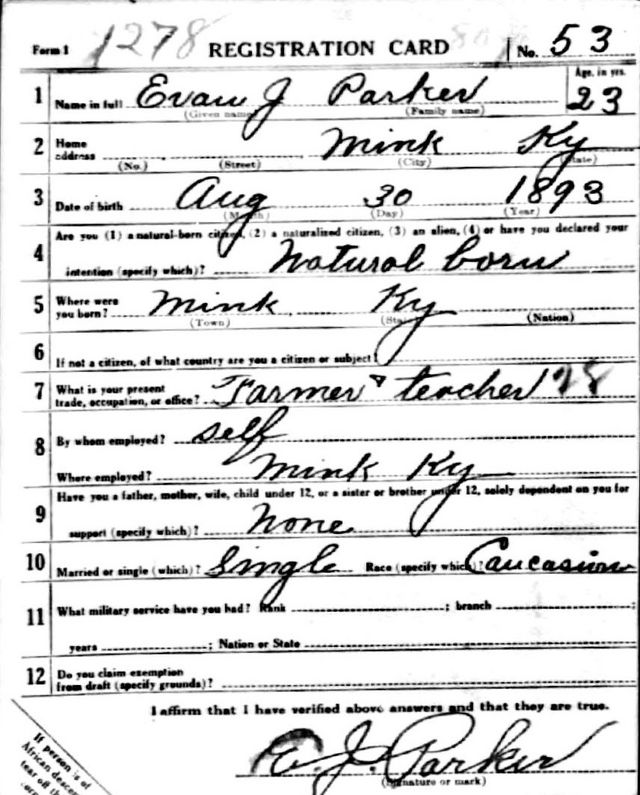 Form 1 1278 REGISTRATION CARD No. 53
1 Name in full Evan J Parker Age, in yrs. 23
(Given name) (Family name)
2 Home address Mink Ky
(No.) (Street) (City) (State)
3 Date of birth Aug 30 1893
(Month) (Day) (Year)
4 Are you (1) a natural-born citizen, (2) a naturalized citizen, (3) an alien, (4) or have you declared your
intention (specify which)? Natural born
5 Where were you born? Mink Ky
(Town) (State) (Nation)
6 If not a citizen, of what country are you a citizen or subject?
7 What is your present trade, occupation, or office? Farmer & teacher 28
8 By whom employed? self
Where employed? Mink Ky
9 Have you a father, mother, wife, child under 12, or a sister or brother under 12, solely dependent on you for
support (specify which)? None
10 Married or single (which)? Single Race (specify which)? Caucasian
11 What military service have you had? Rank ; branch ;
years ; Nation or State
12 Do you claim exemption from draft (specify grounds)?
I affirm that I have verified above answers and that they are true.
E. J. Parker
(Signature or mark)
If person is of
African desce
tear off